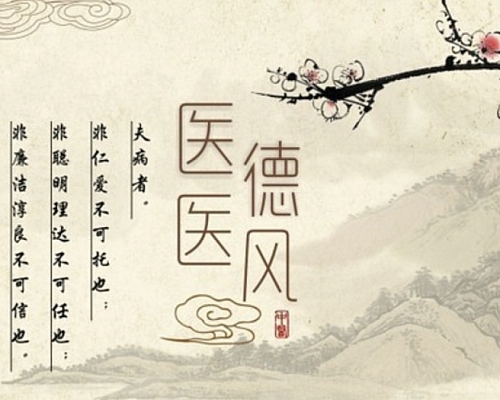 医医
德风
中醫
夫病者。
非仁爱不可托也；
非聪明理达不可任也；
非廉洁淳良不可信也。